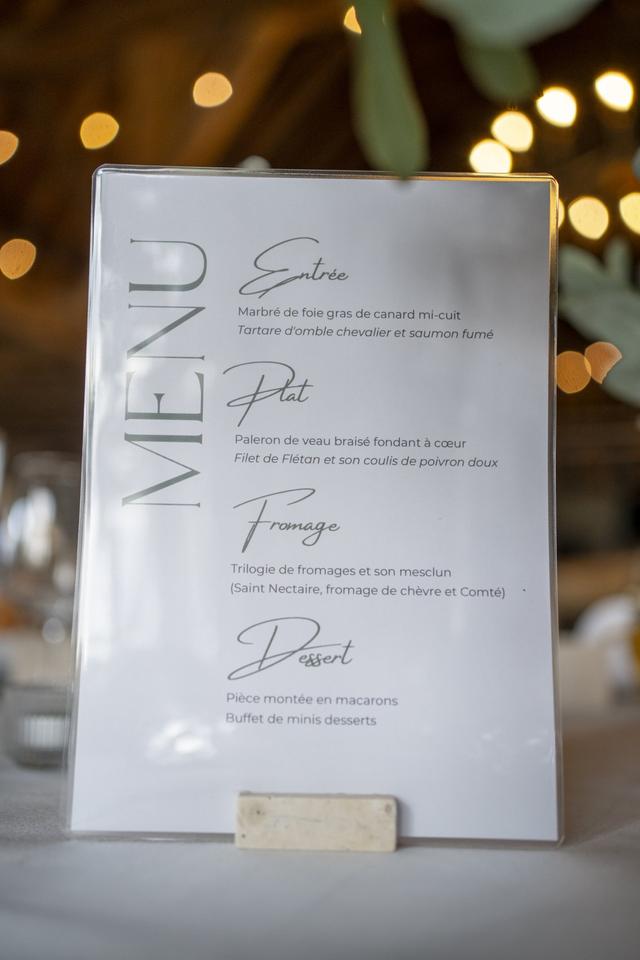 MENU
Entrée
Marbré de foie gras de canard mi-cuit
Tartare d'omble chevalier et saumon fumé
Plat
Paleron de veau braisé fondant à cœur
Filet de Flétan et son coulis de poivron doux
Fromage
Trilogie de fromages et son mesclun
(Saint Nectaire, fromage de chèvre et Comté)
Dessert
Pièce montée en macarons
Buffet de minis desserts